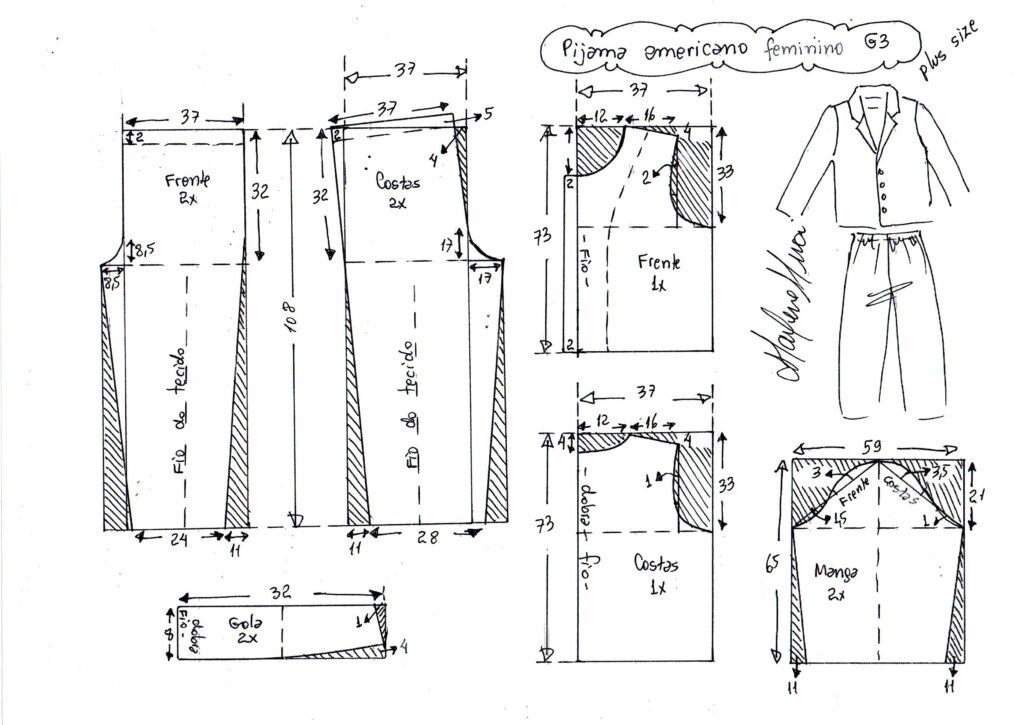 Pijama americano feminino G3
plus size
37
2
Frente
2x
32
8,5
8,5
Fio do tecido
24
11
108
37
37
5
2
4
Costas
2x
32
17
17
Fio do tecido
11
28
37
12
16
4
2
2
33
73
- Fio -
Frente
1x
2
37
12
16
4
4
1
33
73
- dobra + fio -
Costas
1x
59
3
3,5
Frente
Costas
21
1,5
1
65
Manga
2x
11
11
32
8
Fio -
dobra
Gola
2x
1
4
Marlene Mukai